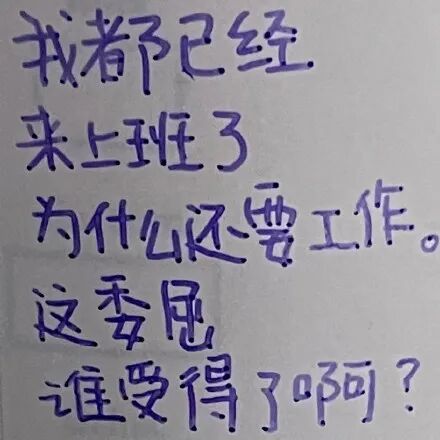 我都已经
来上班了
为什么还要工作。
这委屈
谁受得了啊？